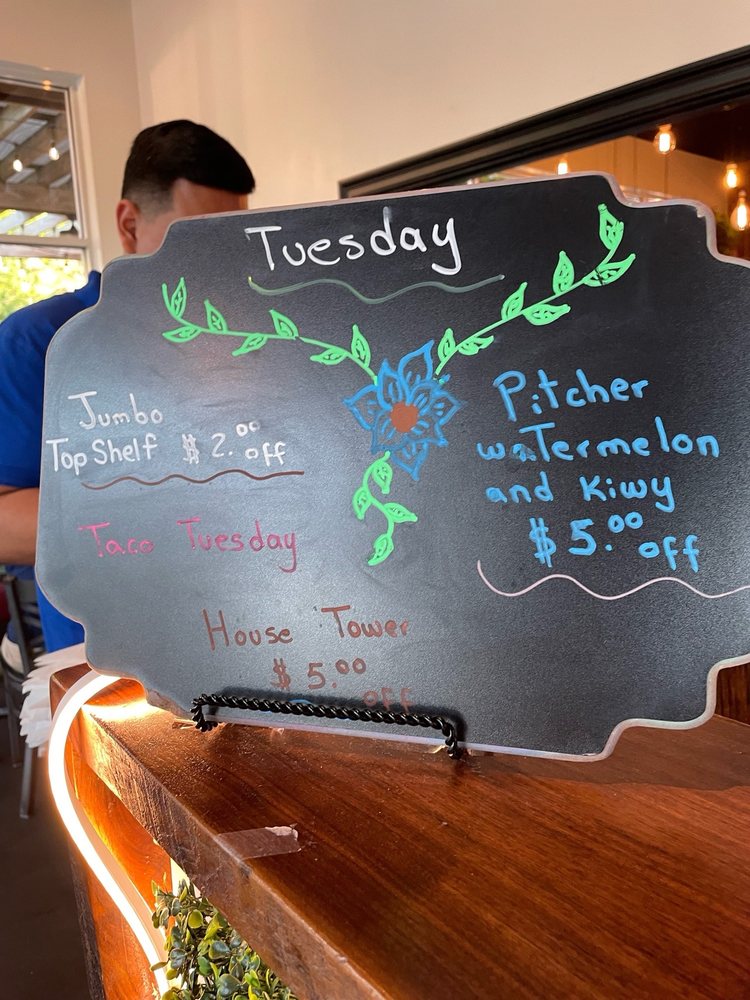 Tuesday
Jumbo
Top Shelf $2.00 off
Taco Tuesday
Pitcher
watermelon
and Kiwy
$5.00 off
House Tower
$5.00
off